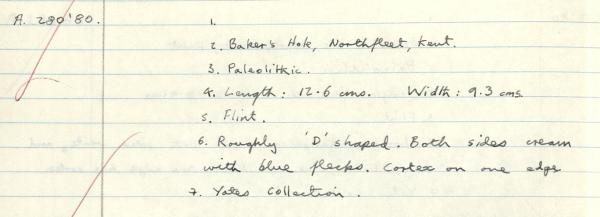 A. 280'80. 1.
2. Baker's Hole, Northfleet, Kent.
3. Paleolithic.
4. Length: 12.6 cms. Width: 9.3 cms.
5. Flint.
6. Roughly 'D' shaped. Both sides cream
with blue flecks. Cortex on one edge
7. Yates Collection.